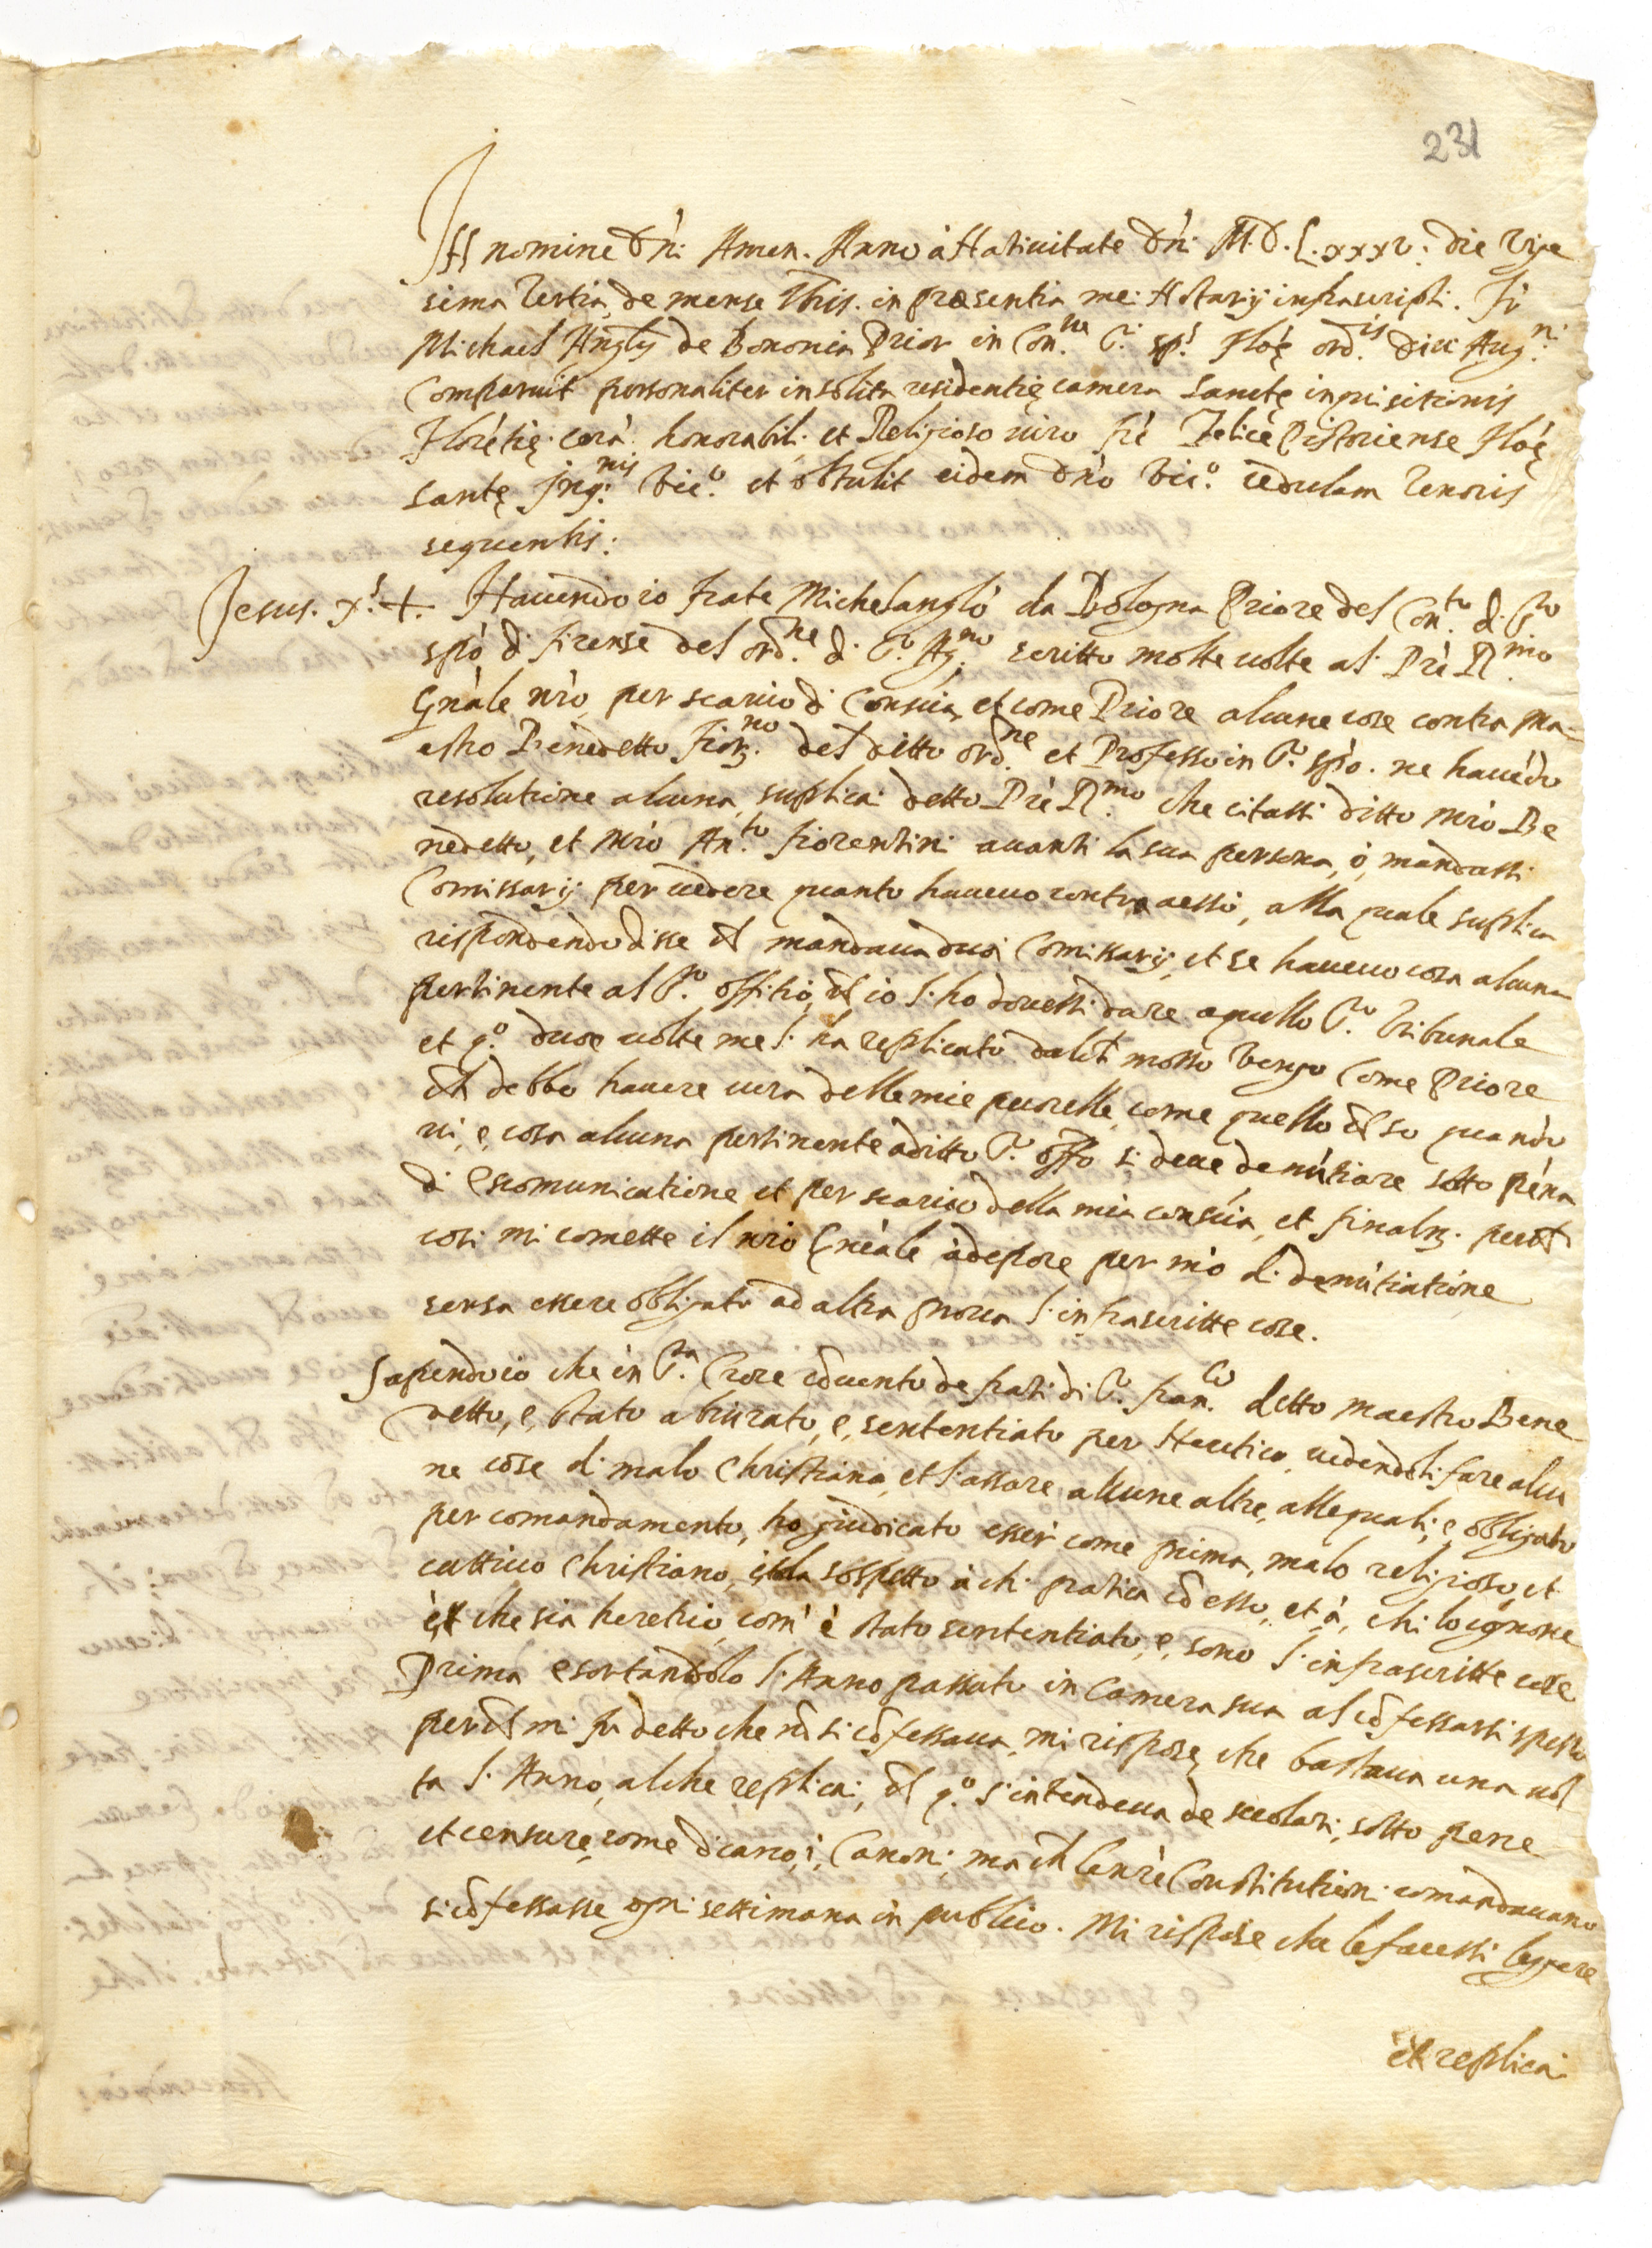 231
In nomine Dni Amen. Anno à Nativitate Dni M.D.L.xxxv: die vige
sima tertia de mense in praesentia mei Notarij infrascripti. Fr
Michael Anglus de Bononia Prior in Con. S.ti spi Floę ord.is divi Aug.ni
Comparuit personaliter in solita residentię camera sanctę inquisitionis
Floretię. corà honorabili et Religioso viro frè Felice Pistoriense Floę
santę Inq.nis Vic.o et obtulit eidem dno Vic.o cedulam tenoris
sequentis:
Jesus. x.s +. Havendo io frate Michelanglo da Bologna Priore del Con.to di S.to
spò di firense del ord.ne di S.to Ag.no scritto molte volte al Prè R.mo
Gnàle nrò, per scarico di Consia, et come Priore alcune cose contra Ma-
estro Benedetto fior.no del ditto ord.ne et Professo in S.to spò. ne havédo
resolutione alcuna, suplicai detto Prè R.mo che citassi ditto Mrò Be
nedetto, et Mrò An.to fiorentini avanti la sua persona, ò, mandassi
Comissarij per vedere quanto havevo contra aessi, alla quale suplica
rispondendo disse ch mandava duoi Comissarij, et se havevo cosa alcuna
pertinente al S.to offitio, ch io l'ho dovessi dare a quello S.to Tribunale
et q.o duoe volte me l'ha replicato. dalch mosso vengo Come Priore
ch debbo havere cura delle mie pecorelle, come quello ch so quando
vi, e, cosa alcuna pertinente à ditto S.to offo si deve denùtiare sotto péna
di escomunicatione et per scarico della mia consìa, et finalm. perch
cosi mi comette il nrò Gnèale à depore per mò di denùtiatione
sensa essere obligato ad altra prova l'infrascritte cose.
Sapendo io che in S.ta Croce cōvento de frati di S. Fran.co detto maestro Bene
detto, e, stato abiurato, e, sententiato per Heretico, vedendoli fare alcu
ne cose di malo Christiano, et lassare alcune altre, alle quali, e, obligato
per comandamento, ho giudicato esser come prima, malo religioso, et
cattivo Christiano, et da sospetto à chi pratica cō esso, et à, chi lo cognosce
che sia heretico, com' è stato sententiato, e, sono l'infrascritte cose
Prima esortandolo l'Anno passato in Camera sua al cōfessarsi spesso
perch mi fu detto che nō si cōfessava, mi rispose, che bastava una vol
ta l'Anno, al che replicai, ch q.o s'intendeva de secolari, sotto pene
et censure, come dicano, i, Canoni, ma ch le nrè Constitutioni comandavano
si cōfessasse ogni settimana in publico. Mi rispose che le facessi leggere
et replicai